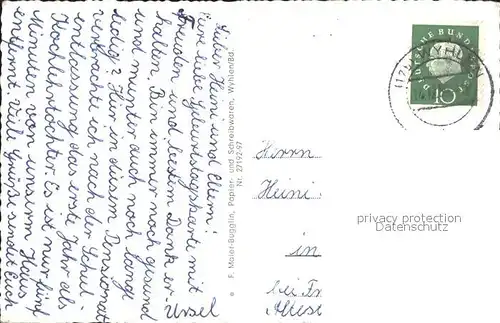 Lieber Heini und Eltern!
Eure liebe Geburtstagskarte mit
Freuden und bestem Dank er-
halten. Bin immer noch gesund
und munter auch noch ganz
ledig? Hier in diesem Pensionat
verbrachte ich nach der Schul-
entlassung das erste Jahr als
Kochlehrtochter. Es ist nur fünf
Minuten von unserm Haus
entfernt. Viel Grüße sendet Euch
Ursel
F. Maier-Bugglin, Papier- und Schreibwaren, Wyhlen/Bd.
Nr. 27192-97
DEUTSCHE BUNDESPOST
10
WYHLEN
Herrn
Heini
in
bei Fr
privacy protection
Datenschutz